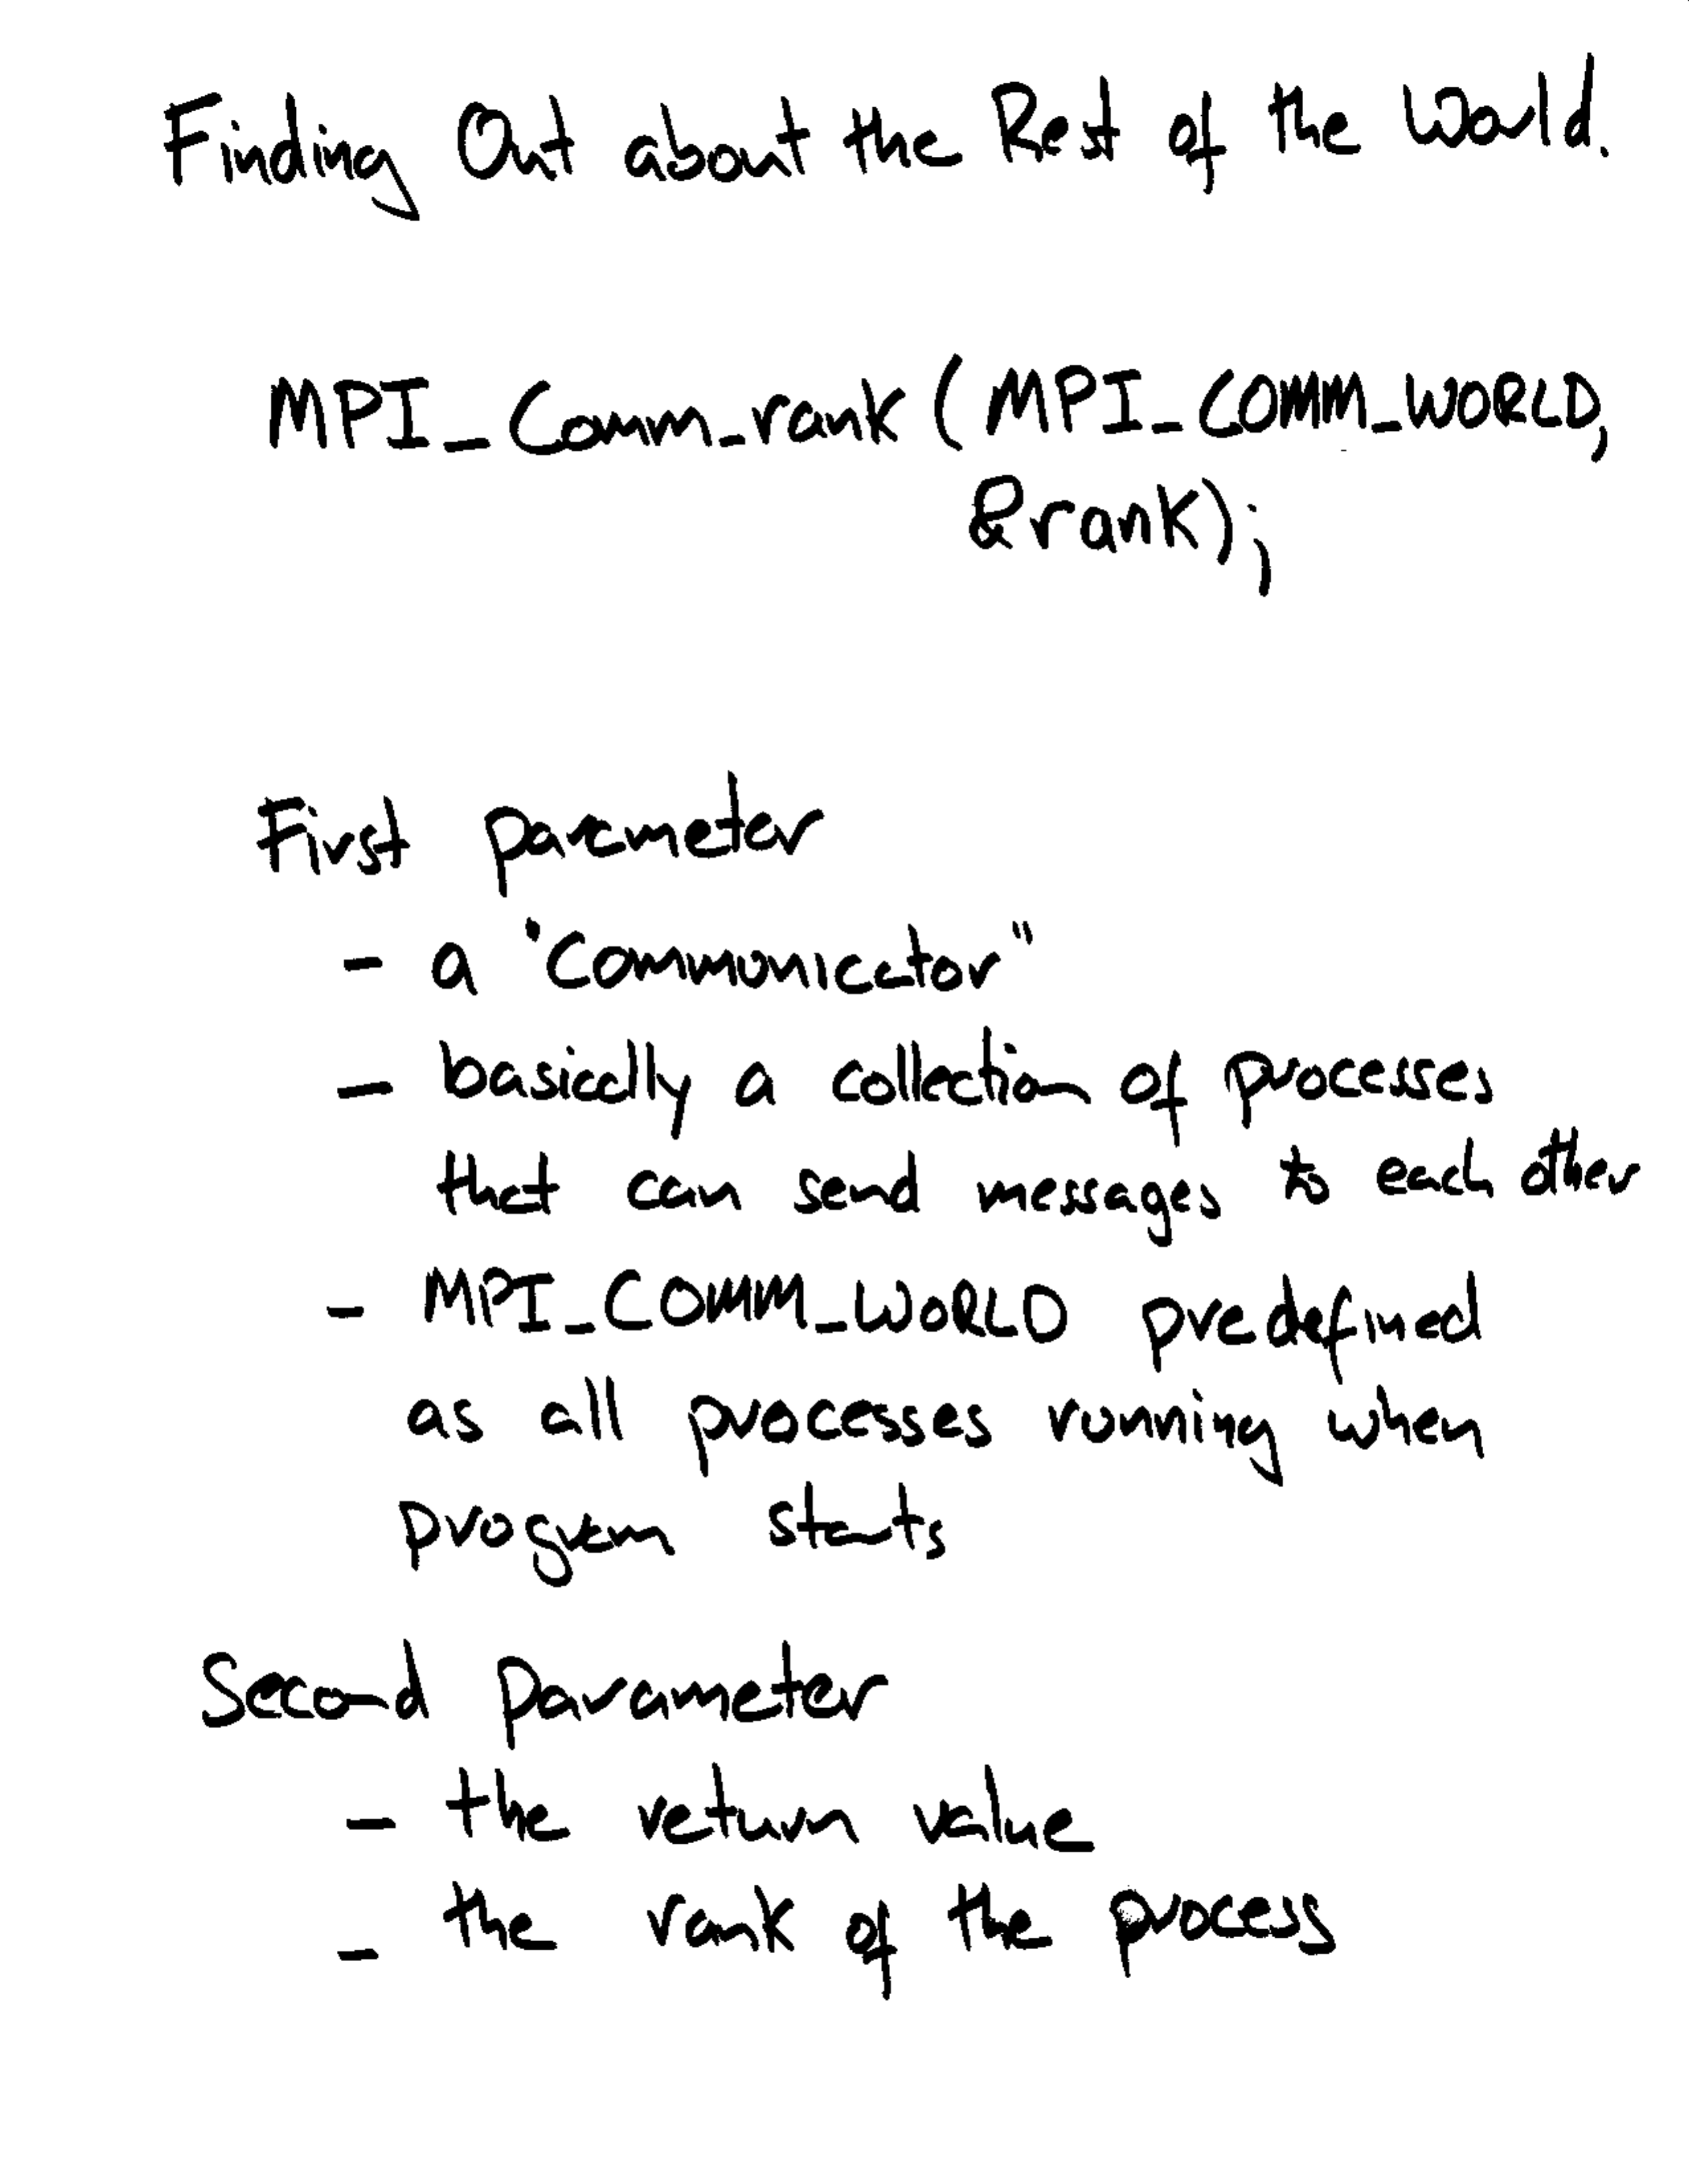 Finding Out about the Rest of the World.
MPI_Comm_rank (MPI_COMM_WORLD,
&rank);
First parameter
- a "communicator"
- basically a collection of processes
that can send messages to each other
- MPI_COMM_WORLD predefined
as all processes running when
program starts
Second parameter
- the return value
- the rank of the process